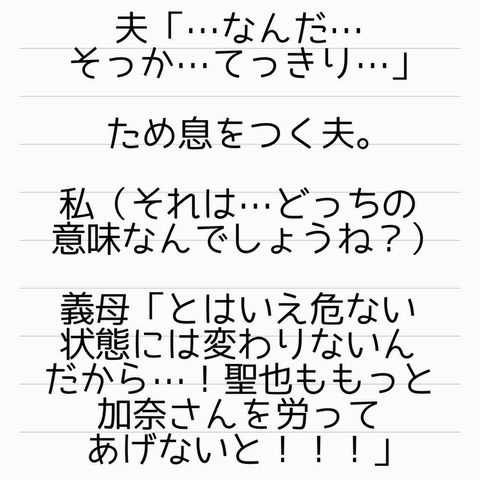 夫「…なんだ…
そっか…てっきり…」
ため息をつく夫。
私（それは…どっちの
意味なんでしょうね？）
義母「とはいえ危ない
状態には変わりないん
だから…！聖也ももっと
加奈さんを労って
あげないと！！！」